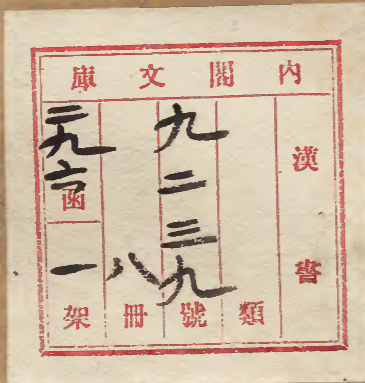 內閣文庫
漢書
類
九二三九號
八冊
二九六函
一架